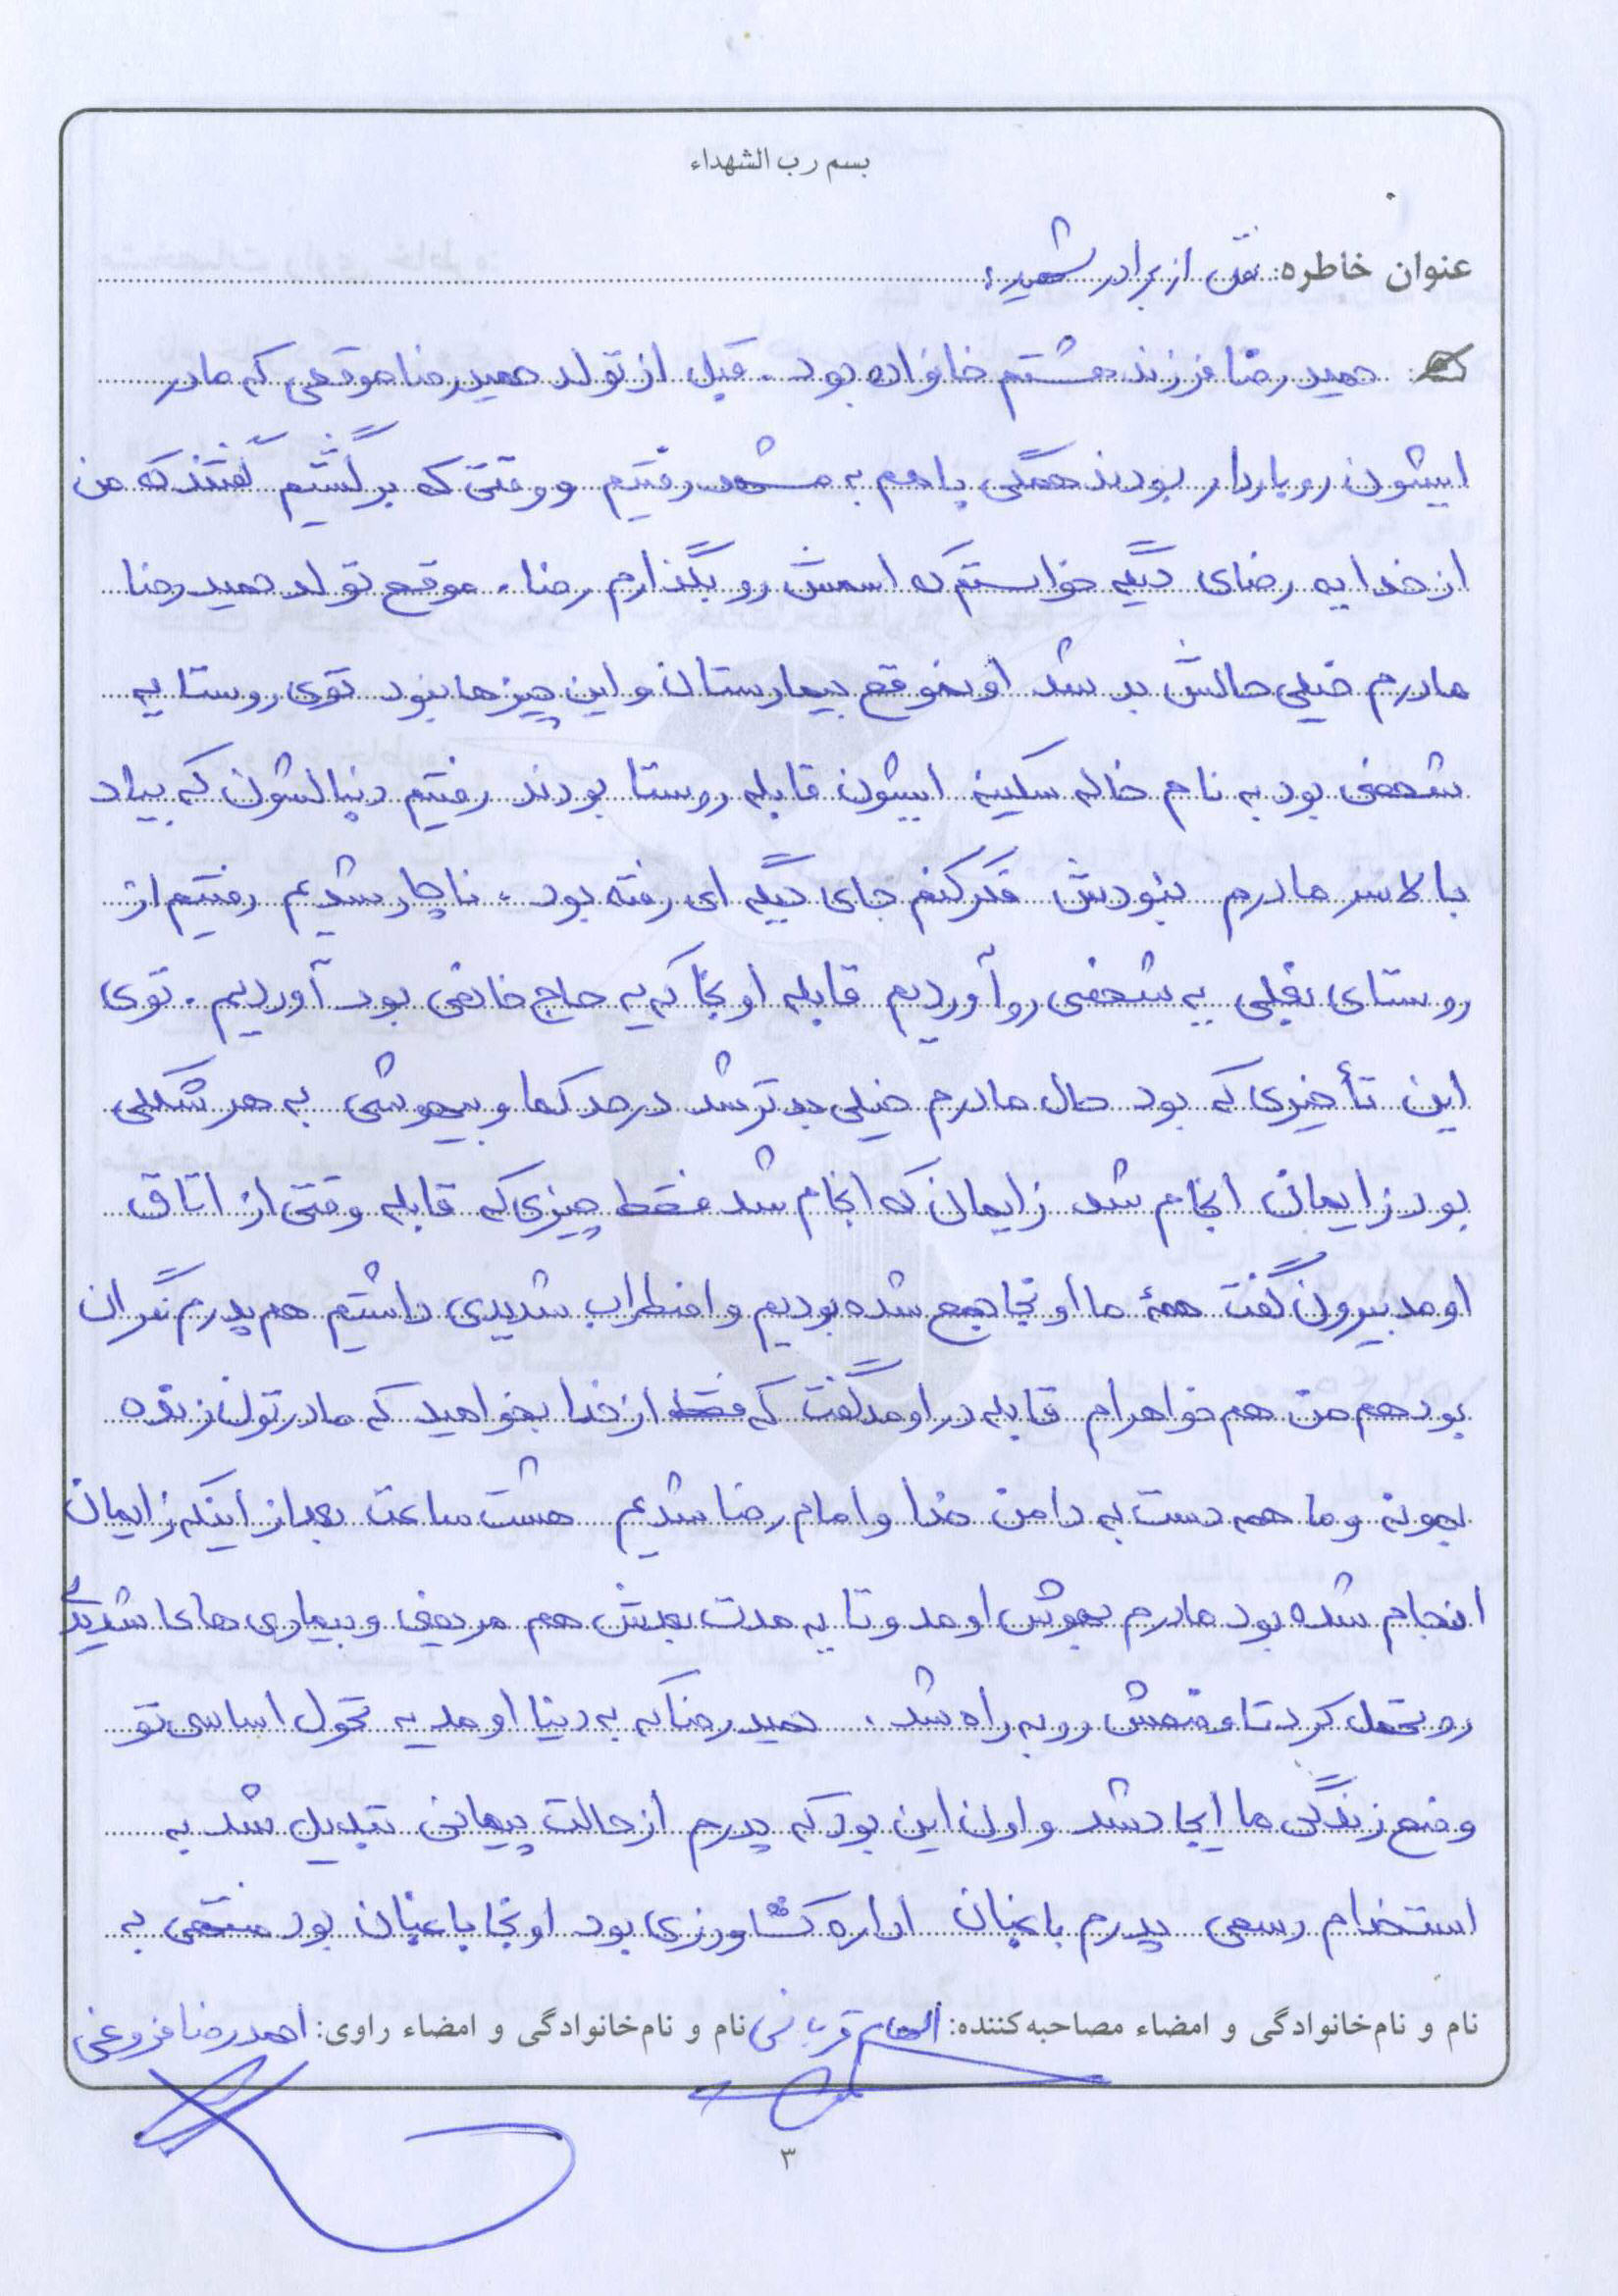 بسم رب الشهداء
عنوان خاطره: نقل از برادر شهید:
حمیدرضا فرزند هشتم خانواده بود. قبل از تولد حمیدرضا موقعی که مادر
ایشون رو باردار بودند همگی باهم به مشهد رفتیم و وقتی که برگشتیم گفتند که من
از خدا یه رضای دیگه خواستم که اسمش رو بگذارم رضا. موقع تولد حمیدرضا
مادرم خیلی حالش بد شد اونموقع بیمارستان و این چیزها نبود توی روستا یه
شخصی بود به نام خاله سکینه ایشون قابله روستا بودند رفتیم دنبالشون که بیاد
بالا سر مادرم نبودش فکر کنم جای دیگه ای رفته بود، ناچار شدیم رفتیم از
روستای بغلی یه شخصی رو آوردیم قابله اونجا که یه حاج خانمی بود آوردیم. توی
این تأخیری که بود حال مادرم خیلی بدتر شد در حد کما و بیهوشی به هر شکلی
بود زایمان انجام شد زایمان که انجام شد فقط چیزی که قابله وقتی از اتاق
اومد بیرون گفت همهٔ ما اونجا جمع شده بودیم و اضطراب شدیدی داشتیم هم پدرم نگران
بود هم من هم خواهرام قابله در اومد گفت که فقط از خدا بخواهید که مادرتون زنده
بمونه و ما همه دست به دامن خدا و امام رضا شدیم هشت ساعت بعد از اینکه زایمان
انجام شده بود مادرم بهوش اومد و تا یه مدت بعدش هم مریضی و بیماری های شدیدی
رو تحمل کرد تا وضعش رو به راه شد. حمیدرضا که به دنیا اومد یه تحول اساسی تو
وضع زندگی ما ایجاد شد و اولن این بود که پدرم از حالت پیمانی تبدیل شد به
استخدام رسمی پدرم باغبان اداره کشاورزی بود اونجا باغبان بود منتهی به
نام و نام‌خانوادگی و امضاء مصاحبه‌کننده: الهام قربانی نام و نام‌خانوادگی و امضاء راوی: احمدرضا فروغی
۳